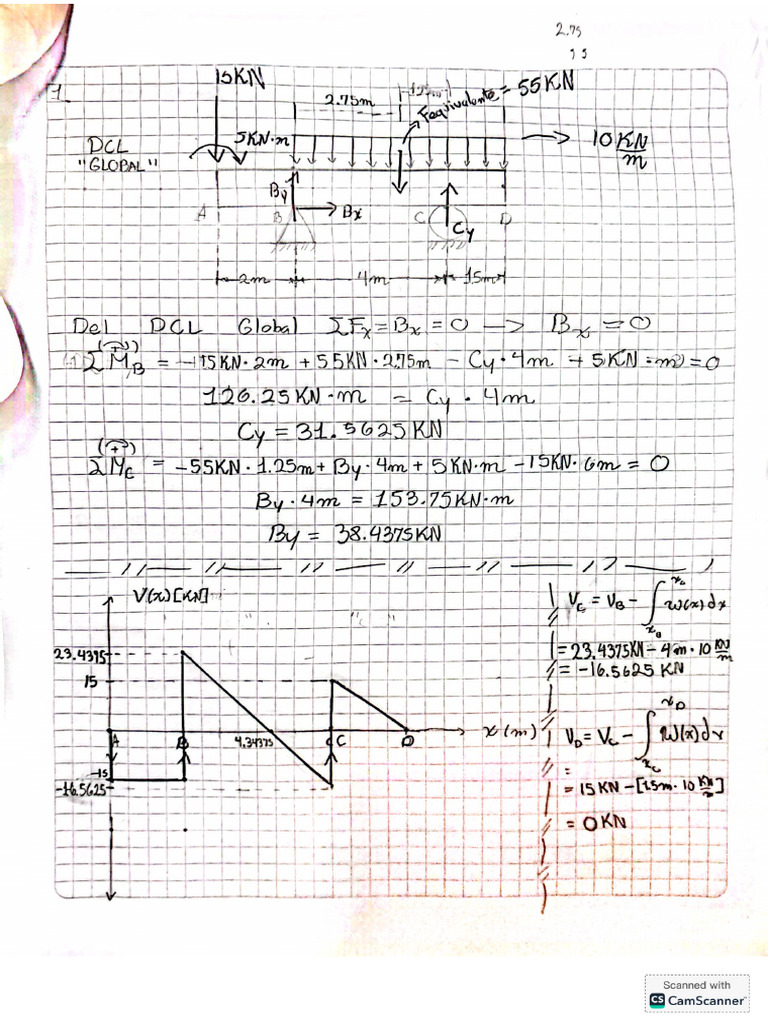 2.75
1 5
1
15KN
2.75m
Fequivalente = 55KN
DCL
"GLOBAL"
5KN·m
10 KN/m
By
A
B
Bx
C
Cy
D
2m
4m
1.5m
Del DCL Global ΣFx = Bx = 0 → Bx = 0
ΣM_B = -15KN·2m + 55KN·2.75m - Cy·4m + 5KN·m = 0
126.25KN·m = Cy·4m
Cy = 31.5625KN
ΣM_C = -55KN·1.25m + By·4m + 5KN·m - 15KN·6m = 0
By·4m = 153.75KN·m
By = 38.4375KN
V(x)[KN]
23.4375
15
A
B
4.34375
C
D
x(m)
-15
-16.5625
V_C = V_B - ∫_{x_B}^{x_C} w(x)dx
= 23.4375KN - 4m·10 KN/m
= -16.5625 KN
V_D = V_C - ∫_{x_C}^{x_D} w(x)dx
=
= 15KN - [1.5m·10 KN/m]
= 0KN
Scanned with
CS CamScanner